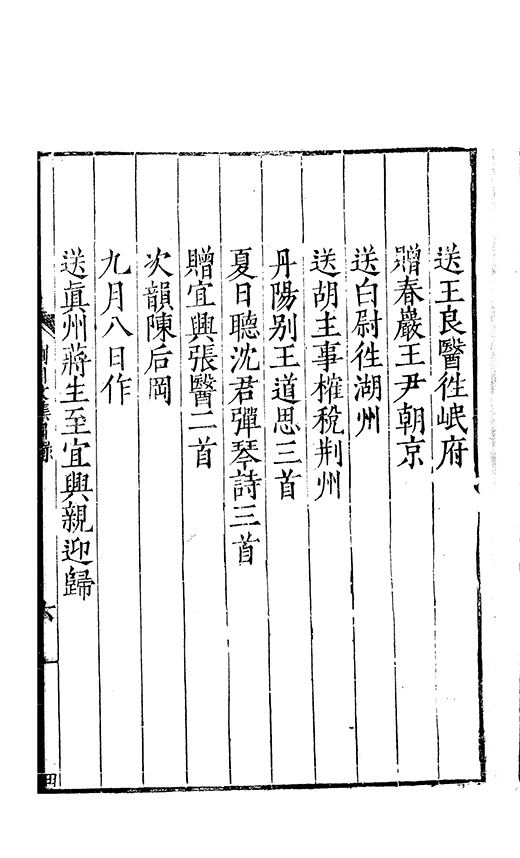 送王良醫徃岷府
贈春巖王尹朝京
送白尉徃湖州
送胡主事榷稅荆州
丹陽别王道思三首
夏日聽沈君彈琴詩三首
贈宜興張醫二首
次韻陳后岡
九月八日作
送真州蔣生至宜興親迎歸
荆川文集目錄
六